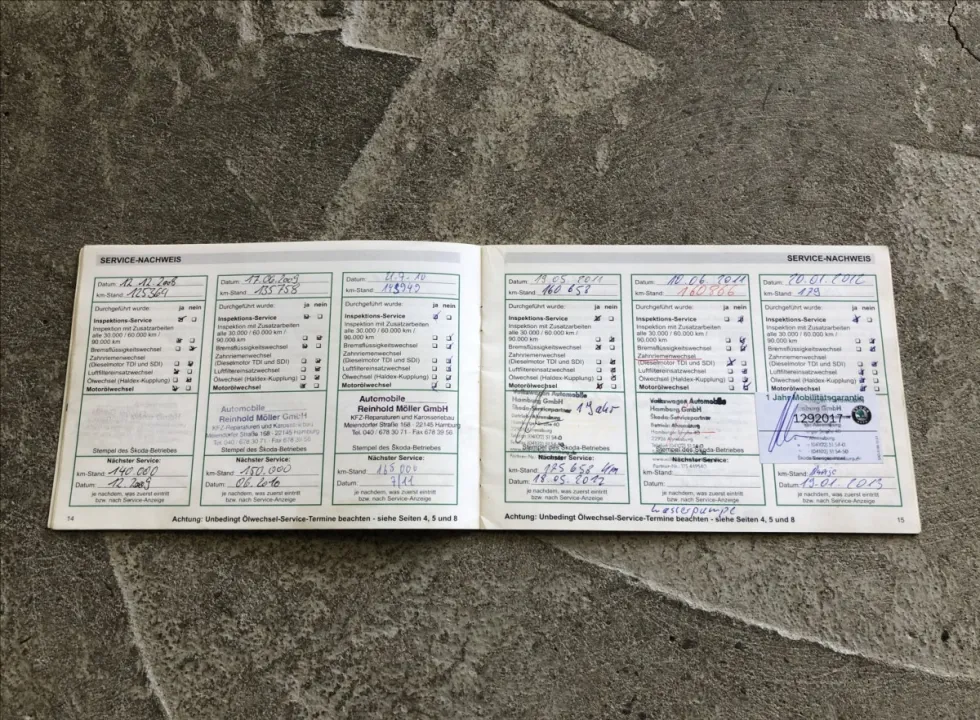 SERVICE-NACHWEIS
Datum: 12.12.2008
km-Stand: 125369
Durchgeführt wurde: ja nein
Inspektions-Service
Inspektion mit Zusatzarbeiten
alle 30.000 / 60.000 km /
90.000 km
Bremsflüssigkeitswechsel
Zahnriemenwechsel
(Dieselmotor TDI und SDI)
Luftfiltereinsatzwechsel
Ölwechsel (Haldex-Kupplung)
Motorölwechsel
Stempel des Skoda-Betriebes
Nächster Service:
km-Stand: 140.000
Datum: 12.2009
je nachdem, was zuerst eintritt
bzw. nach Service-Anzeige
Datum: 17.06.2009
km-Stand: 135758
Durchgeführt wurde: ja nein
Inspektions-Service
Inspektion mit Zusatzarbeiten
alle 30.000 / 60.000 km /
90.000 km
Bremsflüssigkeitswechsel
Zahnriemenwechsel
(Dieselmotor TDI und SDI)
Luftfiltereinsatzwechsel
Ölwechsel (Haldex-Kupplung)
Motorölwechsel
Automobile
Reinhold Möller GmbH
KFZ-Reparaturen und Karosseriebau
Meiendorfer Straße 168 - 22145 Hamburg
Tel. 040 / 678 30 71 - Fax 678 39 56
Stempel des Skoda-Betriebes
Nächster Service:
km-Stand: 150.000
Datum: 06.2010
je nachdem, was zuerst eintritt
bzw. nach Service-Anzeige
Datum:
km-Stand:
Durchgeführt wurde: ja nein
Inspektions-Service
Inspektion mit Zusatzarbeiten
alle 30.000 / 60.000 km /
90.000 km
Bremsflüssigkeitswechsel
Zahnriemenwechsel
(Dieselmotor TDI und SDI)
Luftfiltereinsatzwechsel
Ölwechsel (Haldex-Kupplung)
Motorölwechsel
Automobile
Reinhold Möller GmbH
KFZ-Reparaturen und Karosseriebau
Meiendorfer Straße 168 - 22145 Hamburg
Tel. 040 / 678 30 71 - Fax 678 39 56
Stempel des Skoda-Betriebes
Nächster Service:
km-Stand:
Datum: 7/11
je nachdem, was zuerst eintritt
bzw. nach Service-Anzeige
14
Achtung: Unbedingt Ölwechsel-Service-Termine beachten - siehe Seiten 4, 5 und 8
SERVICE-NACHWEIS
Datum: 19.05.2011
km-Stand: 160 658
Durchgeführt wurde: ja nein
Inspektions-Service
Inspektion mit Zusatzarbeiten
alle 30.000 / 60.000 km /
90.000 km
Bremsflüssigkeitswechsel
Zahnriemenwechsel
(Dieselmotor TDI und SDI)
Luftfiltereinsatzwechsel
Ölwechsel (Haldex-Kupplung)
Motorölwechsel
Volkswagen Automobile
Hamburg GmbH
Skoda-Servicepartner
1 Jahr
Stempel des Skoda-Betriebes
Nächster Service:
km-Stand: 175 658 km
Datum: 18.05.2012
je nachdem, was zuerst eintritt
bzw. nach Service-Anzeige
Datum: 10.06.2011
km-Stand:
Durchgeführt wurde: ja nein
Inspektions-Service
Inspektion mit Zusatzarbeiten
alle 30.000 / 60.000 km /
90.000 km
Bremsflüssigkeitswechsel
Zahnriemenwechsel
(Dieselmotor TDI und SDI)
Luftfiltereinsatzwechsel
Ölwechsel (Haldex-Kupplung)
Motorölwechsel
Volkswagen Automobile
Hamburg GmbH
Skoda-Servicepartner
Stempel des Skoda-Betriebes
Nächster Service:
km-Stand:
Datum:
je nachdem, was zuerst eintritt
bzw. nach Service-Anzeige
Wasserpumpe
Datum: 20.01.2012
km-Stand: 179
Durchgeführt wurde: ja nein
Inspektions-Service
Inspektion mit Zusatzarbeiten
alle 30.000 / 60.000 km /
90.000 km
Bremsflüssigkeitswechsel
Zahnriemenwechsel
(Dieselmotor TDI und SDI)
Luftfiltereinsatzwechsel
Ölwechsel (Haldex-Kupplung)
Motorölwechsel
1 Jahr Mobilitätsgarantie
1292017
km-Stand:
Datum: 19.01.2013
je nachdem, was zuerst eintritt
bzw. nach Service-Anzeige
Achtung: Unbedingt Ölwechsel-Service-Termine beachten - siehe Seiten 4, 5 und 8
15